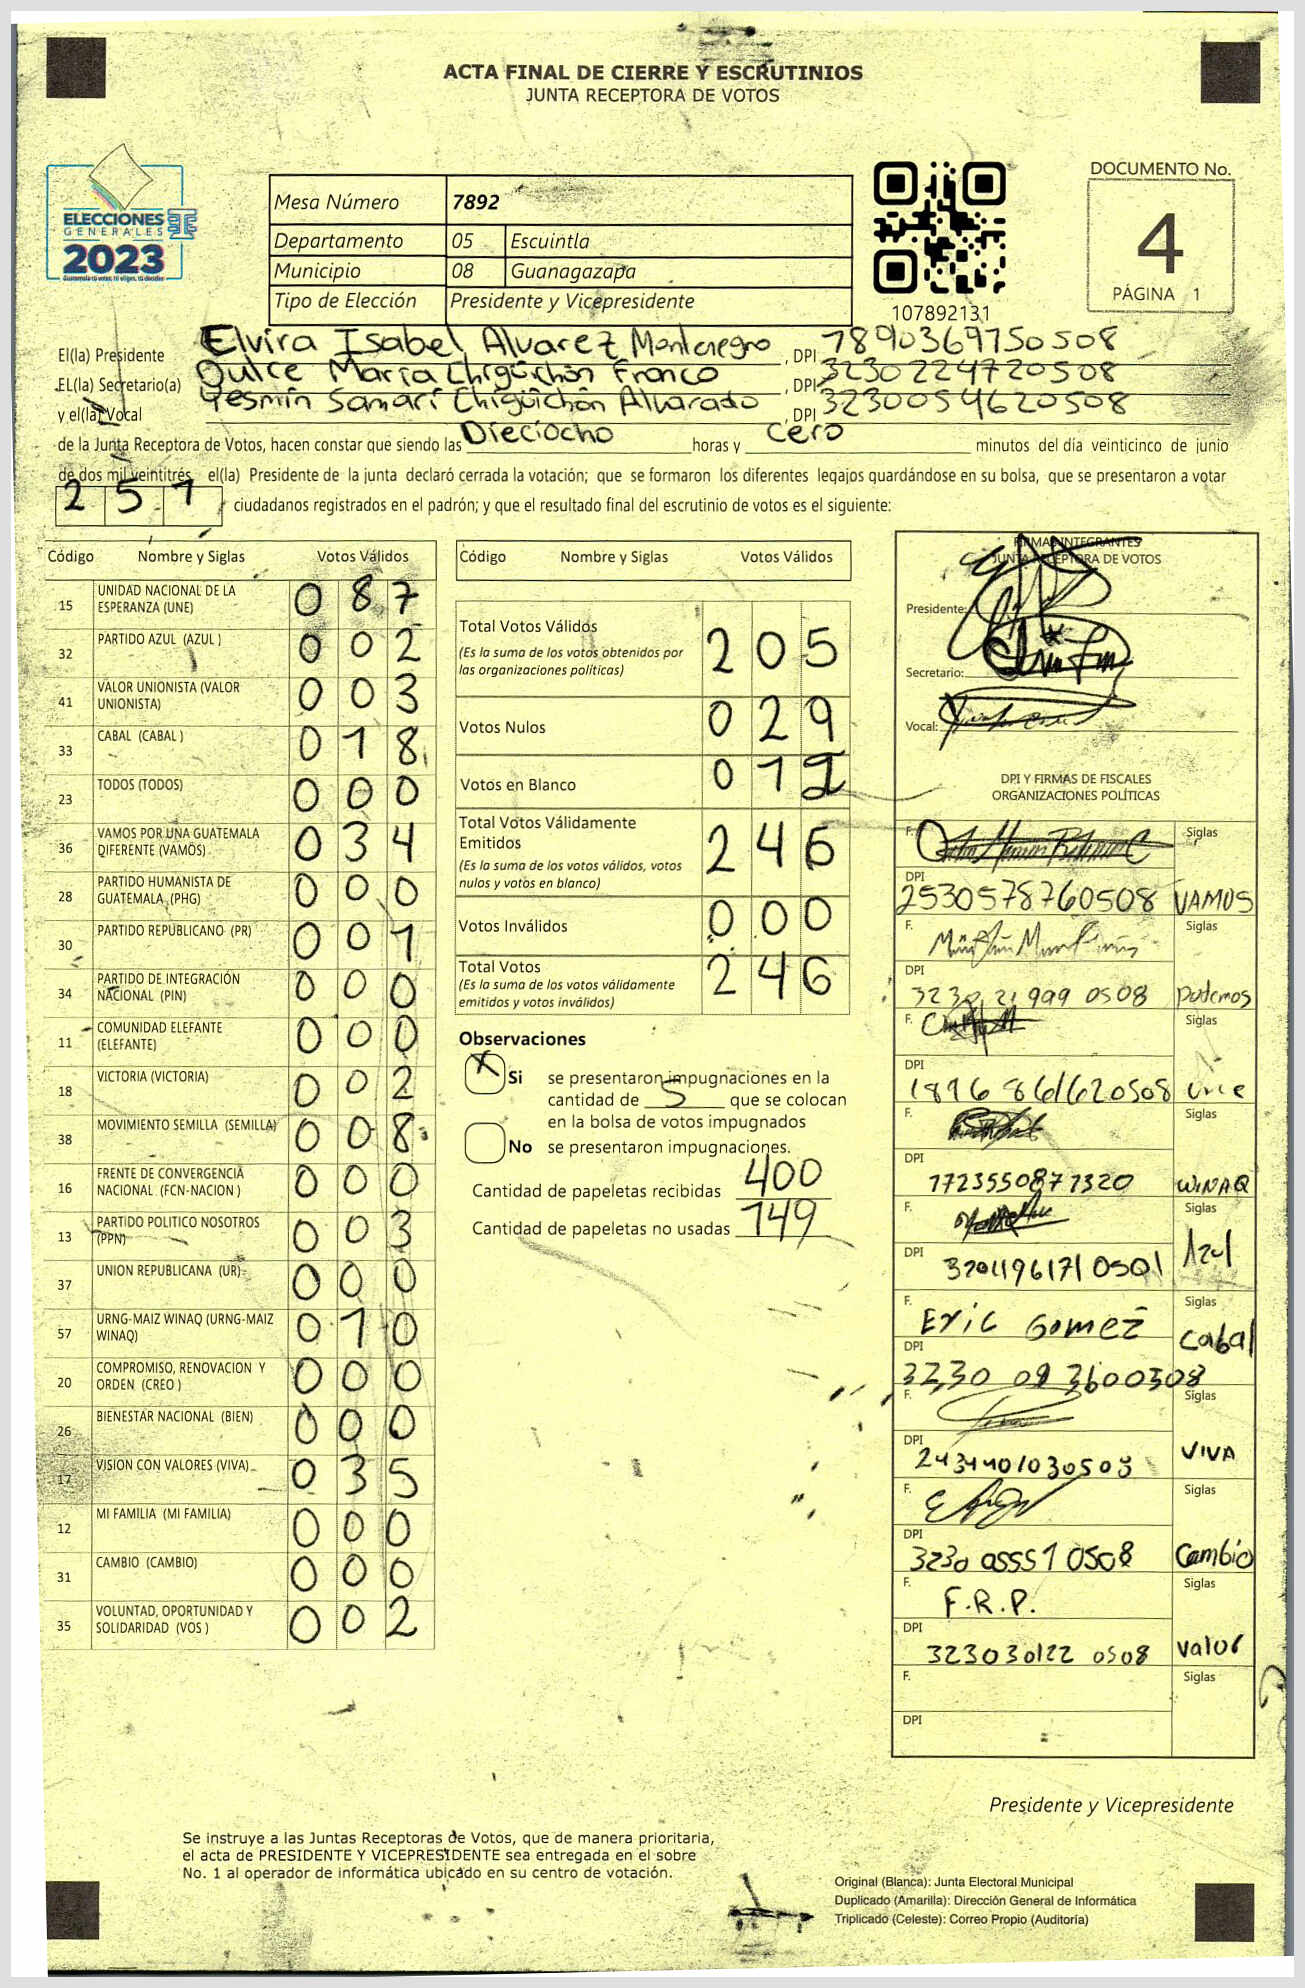 ACTA FINAL DE CIERRE Y ESCRUTINIOS
JUNTA RECEPTORA DE VOTOS
ELECCIONES
GENERALES
2023
Mesa Número 7892
Departamento 05 Escuintla
Municipio 08 Guanagazapa
Tipo de Elección Presidente y Vicepresidente
107892131
DOCUMENTO No.
4
PÁGINA 1
El(la) Presidente Elvira Isabel Alvarez Montenegro , DPI 1890369750508
EL(la) Secretario(a) Dulce María Chigüichón Franco , DPI 3230224720508
y el(la) Vocal Yesmin Samari Chigüichón Alvarado , DPI 3230054620508
de la Junta Receptora de Votos, hacen constar que siendo las Dieciocho horas y cero minutos del día veinticinco de junio
de dos mil veintitrés el(la) Presidente de la junta declaró cerrada la votación; que se formaron los diferentes legajos guardándose en su bolsa, que se presentaron a votar
251 ciudadanos registrados en el padrón; y que el resultado final del escrutinio de votos es el siguiente:
Código Nombre y Siglas Votos Válidos
15 UNIDAD NACIONAL DE LA ESPERANZA (UNE) 087
32 PARTIDO AZUL (AZUL ) 002
41 VALOR UNIONISTA (VALOR UNIONISTA) 003
33 CABAL (CABAL ) 018
23 TODOS (TODOS) 000
36 VAMOS POR UNA GUATEMALA DIFERENTE (VAMOS) 034
28 PARTIDO HUMANISTA DE GUATEMALA (PHG) 000
30 PARTIDO REPUBLICANO (PR) 001
34 PARTIDO DE INTEGRACIÓN NACIONAL (PIN) 000
11 COMUNIDAD ELEFANTE (ELEFANTE) 000
18 VICTORIA (VICTORIA) 002
38 MOVIMIENTO SEMILLA (SEMILLA) 008
16 FRENTE DE CONVERGENCIA NACIONAL (FCN-NACION ) 000
13 PARTIDO POLITICO NOSOTROS (PPN) 003
37 UNION REPUBLICANA (UR) 000
57 URNG-MAIZ WINAQ (URNG-MAIZ WINAQ) 010
20 COMPROMISO, RENOVACION Y ORDEN (CREO ) 000
26 BIENESTAR NACIONAL (BIEN) 000
17 VISION CON VALORES (VIVA) 035
12 MI FAMILIA (MI FAMILIA) 000
31 CAMBIO (CAMBIO) 000
35 VOLUNTAD, OPORTUNIDAD Y SOLIDARIDAD (VOS ) 002
Código Nombre y Siglas Votos Válidos
Total Votos Válidos 205
(Es la suma de los votos obtenidos por
las organizaciones políticas)
Votos Nulos 029
Votos en Blanco 012
Total Votos Válidamente
Emitidos 246
(Es la suma de los votos válidos, votos
nulos y votos en blanco)
Votos Inválidos 000
Total Votos 246
(Es la suma de los votos válidamente
emitidos y votos inválidos)
Observaciones
X Si se presentaron impugnaciones en la
cantidad de 5 que se colocan
en la bolsa de votos impugnados
No se presentaron impugnaciones.
Cantidad de papeletas recibidas 400
Cantidad de papeletas no usadas 149
FIRMAS INTEGRANTES
JUNTA RECEPTORA DE VOTOS
Presidente:
Secretario:
Vocal:
DPI Y FIRMAS DE FISCALES
ORGANIZACIONES POLÍTICAS
F. Siglas
DPI
2530578760508 VAMOS
F. Siglas
DPI
podemos
F. Siglas
DPI
une
F. Siglas
DPI
1723550871320 WINAQ
F. Siglas
DPI
3201196171 0501 Azul
F. Eric Gomez Siglas
DPI
cabal
F. Siglas
DPI
VIVA
F. Siglas
DPI
3230 05551 0508 Cambio
F. F.R.P. Siglas
DPI
323030122 0508 valor
F. Siglas
DPI
Presidente y Vicepresidente
Se instruye a las Juntas Receptoras de Votos, que de manera prioritaria,
el acta de PRESIDENTE Y VICEPRESIDENTE sea entregada en el sobre
No. 1 al operador de informática ubicado en su centro de votación.
Original (Blanca): Junta Electoral Municipal
Duplicado (Amarilla): Dirección General de Informática
Triplicado (Celeste): Correo Propio (Auditoría)